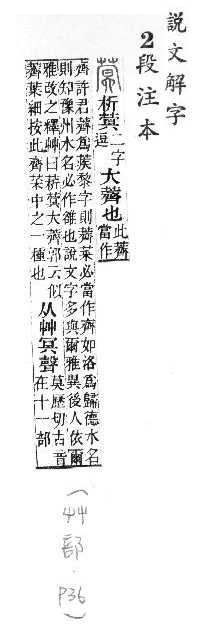 説文解字
2段注本
蓂 析蓂 二字逗 大薺也 此薺當作
齊許君薺爲蒺黎字則薺菜必當作齊如洛爲歸德水名
則知豫州水名必作雒也說文字多與爾雅異後人依爾
雅改之釋艸曰菥蓂大薺郭云似
薺葉細按此齊菜中之一種也 从艸冥聲 莫歷切古音在十一部
(艸部．P36)